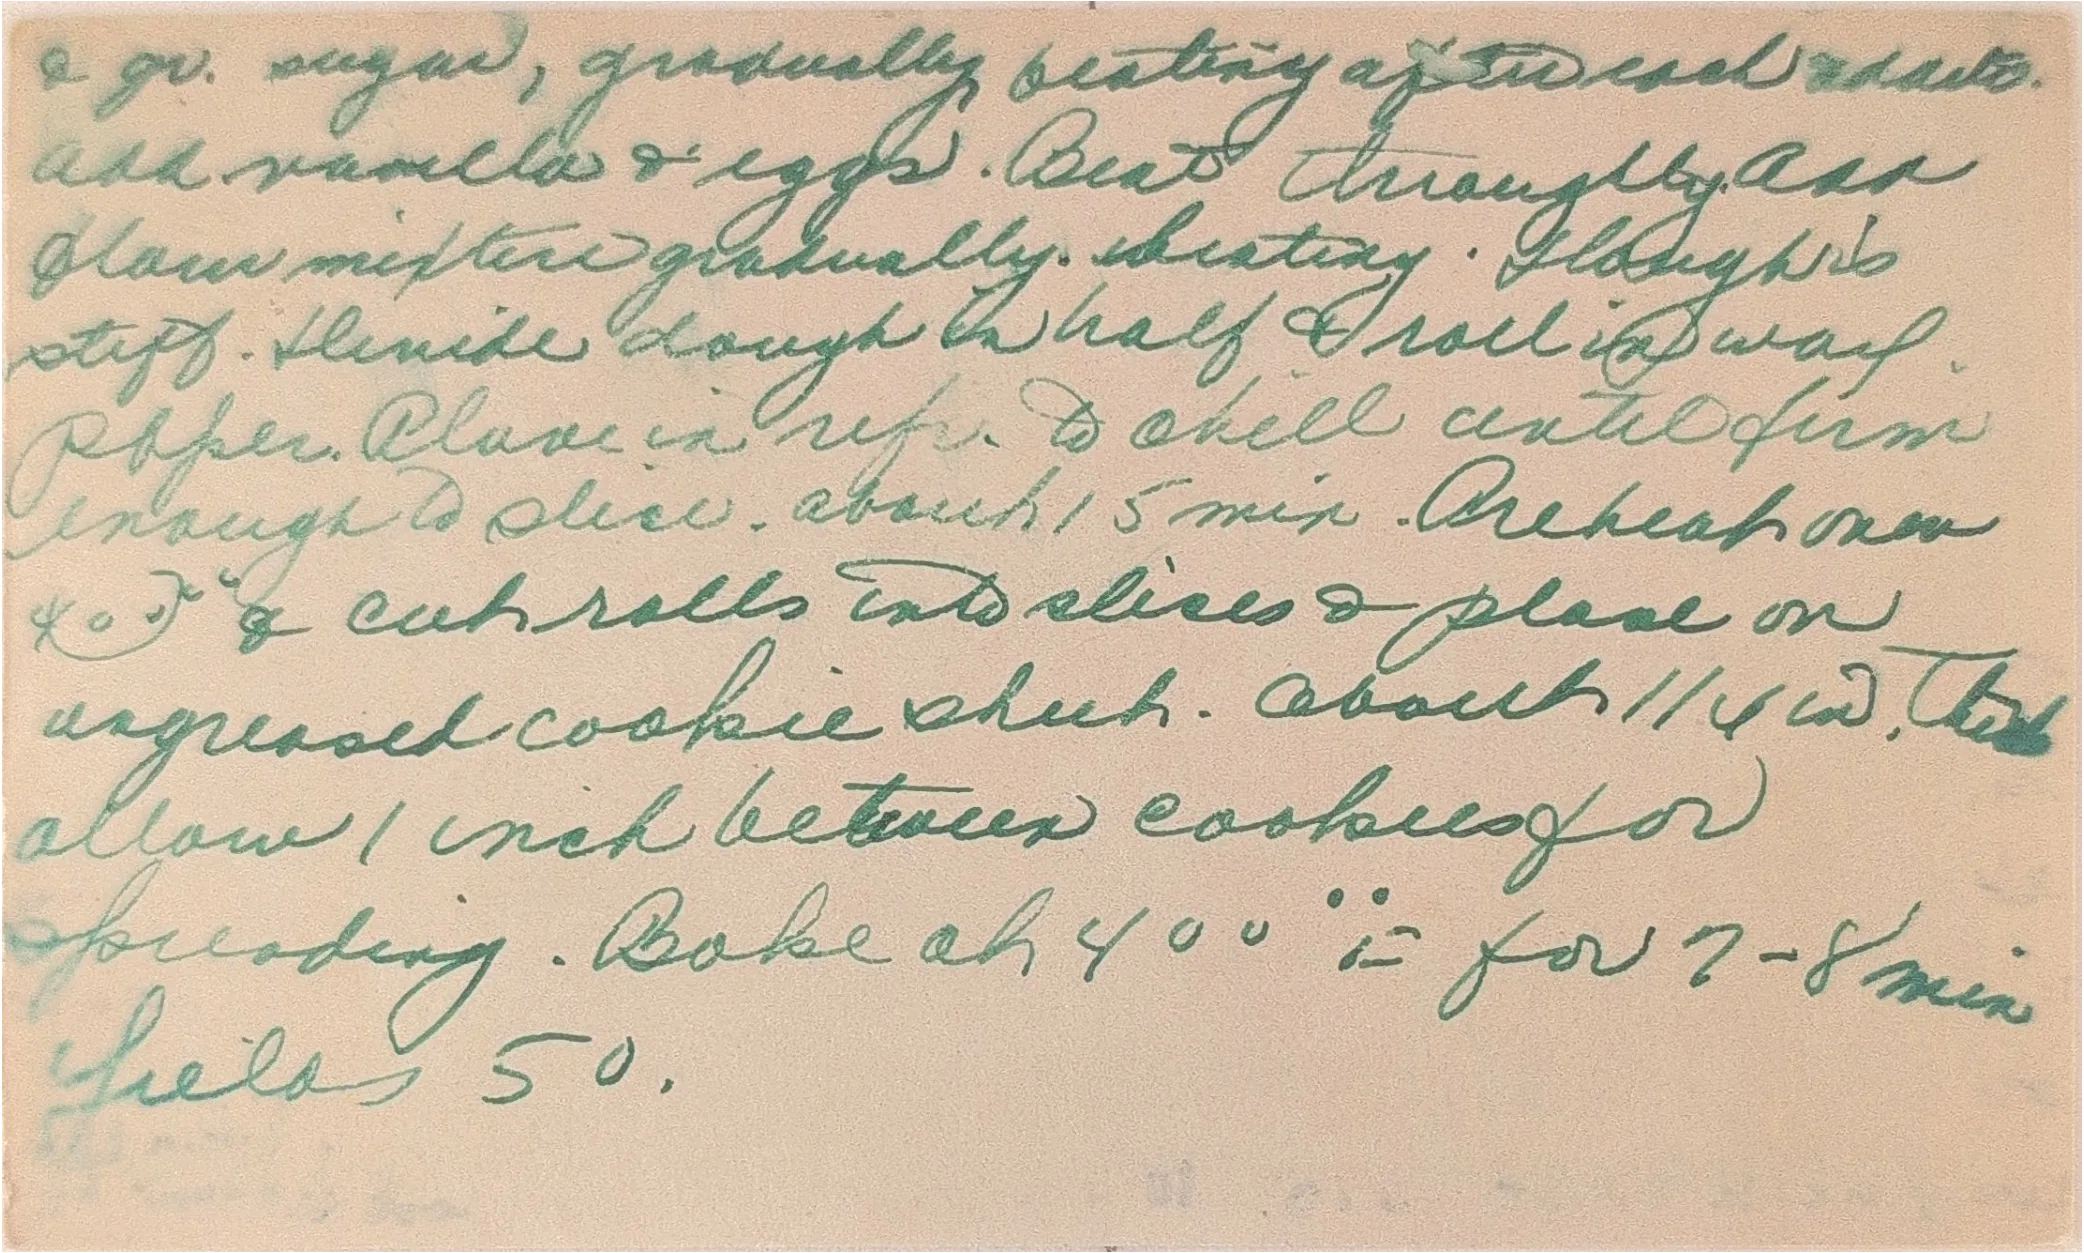 & gr. sugar, gradually beating after each addit.
Add vanilla & eggs. Beat throughly. Add
flour mixture gradually. beating. Dough is
stiff. Devide dough in half & roll in wax
paper. Place in refr. to chill until firm
enough to slice. about 15 min. Preheat oven
400° & cut rolls into slices & place on
ungreased cookie sheet. about 1/4 in. thick
allow 1 inch between cookies for
spreading. Bake at 400 for 7-8 min
Yields 50.